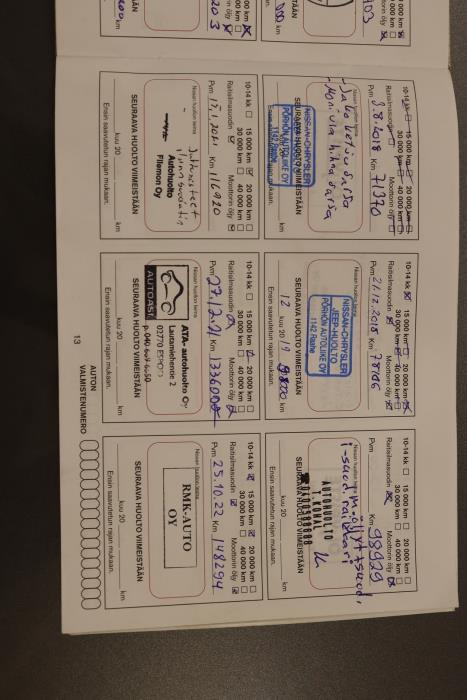 10-14 kk 15 000 km 20 000 km
30 000 km 40 000 km
Raitisilmasuodin Moottorin öljy
Pvm 3.8.2018 Km 71370
Nissan huollon leima
NISSAN-CHRYSLER
PÖRHÖN AUTOLIIKE OY
1142 Raahe
SEURAAVA HUOLTO VIIMEISTÄÄN
kuu 20 km
Ensin saavutetun rajan mukaan.
10-14 kk 15 000 km 20 000 km
30 000 km 40 000 km
Raitisilmasuodin Moottorin öljy
Pvm 21.12.2018 Km 78106
Nissan huollon leima
NISSAN-CHRYSLER
JEEP-HUOLTO
PÖRHÖN AUTOLIIKE OY
1142 Raahe
SEURAAVA HUOLTO VIIMEISTÄÄN
12 kuu 20 19 km
Ensin saavutetun rajan mukaan.
10-14 kk 15 000 km 20 000 km
30 000 km 40 000 km
Raitisilmasuodin Moottorin öljy
Pvm Km 98929
Nissan huollon leima
m.öljyt+suod,
i-suod, raitisari
AUTOHUOLTO
SEURAAVA HUOLTO VIIMEISTÄÄN
kuu 20 km
Ensin saavutetun rajan mukaan.
10-14 kk 15 000 km 20 000 km
30 000 km 40 000 km
Raitisilmasuodin Moottorin öljy
Pvm 15.1.2021 Km 116920
Nissan huollon leima
Autohuolto
Filemon Oy
SEURAAVA HUOLTO VIIMEISTÄÄN
kuu 20 km
Ensin saavutetun rajan mukaan.
10-14 kk 15 000 km 20 000 km
30 000 km 40 000 km
Raitisilmasuodin Moottorin öljy
Pvm 22.12.21 Km 133600
Nissan huollon leima
ATA- autohuolto Oy
Lautamiehentie 2
02770 ESPOO
AUTOASI
SEURAAVA HUOLTO VIIMEISTÄÄN
kuu 20 km
Ensin saavutetun rajan mukaan.
10-14 kk 15 000 km 20 000 km
30 000 km 40 000 km
Raitisilmasuodin Moottorin öljy
Pvm 25.10.22 Km 148294
Nissan huollon leima
RMK-AUTO
OY
SEURAAVA HUOLTO VIIMEISTÄÄN
kuu 20 km
Ensin saavutetun rajan mukaan.
13
AUTON
VALMISTENUMERO